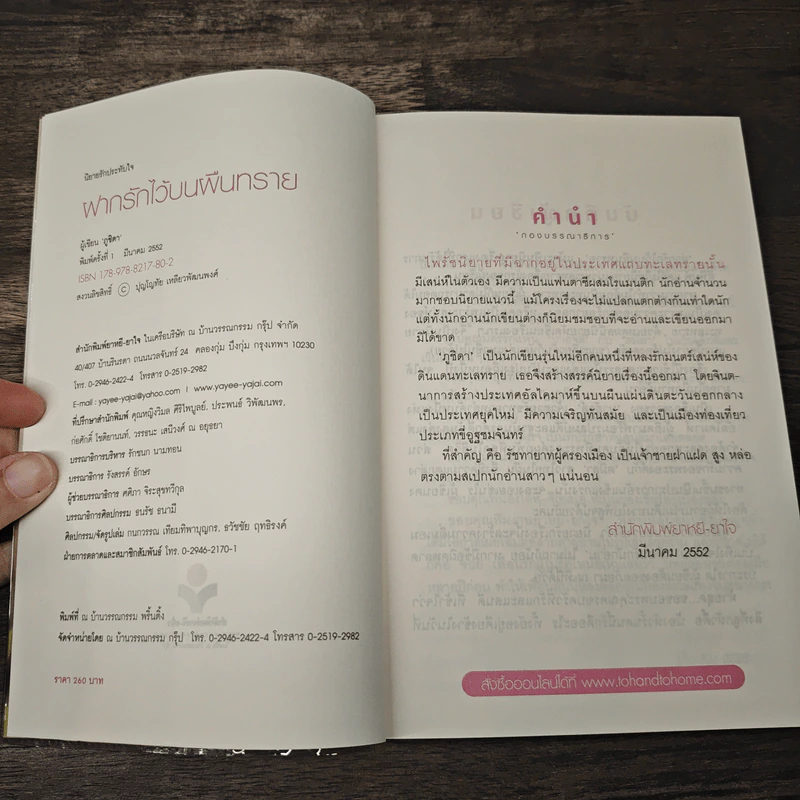 นิยายรักประทับใจ
ฝากรักไว้บนผืนทราย
ผู้เขียน 'ภูชิดา'
พิมพ์ครั้งที่ 1 มีนาคม 2552
ISBN 178-978-8217-80-2
สงวนลิขสิทธิ์ © บุญโญทัย เหลียวพัฒนพงศ์
สำนักพิมพ์ยาหยี-ยาใจ ในเครือบริษัท ณ บ้านวรรณกรรม กรุ๊ป จำกัด
40/407 บ้านรินรดา ถนนนวลจันทร์ 24 คลองกุ่ม บึงกุ่ม กรุงเทพฯ 10230
โทร. 0-2946-2422-4 โทรสาร 0-2519-2982
E-mail : yayee-yajai@yahoo.com | www.yayee-yajai.com
ที่ปรึกษาสำนักพิมพ์ คุณหญิงวิมล ศิริไพบูลย์, ประพนธ์ วิพัฒนพร,
ก่อศักดิ์ โชติยานนท์, วรรธนะ เสนีวงศ์ ณ อยุธยา
บรรณาธิการบริหาร รักชนก นามทอน
บรรณาธิการ รังสรรค์ อักษร
ผู้ช่วยบรรณาธิการ ศศิภา จิระสุขทวีกุล
บรรณาธิการศิลปกรรม ธนรัช ธนามี
ศิลปกรรม/จัดรูปเล่ม กนกวรรณ เทียมทิพาบุญกร, ธวัชชัย ฤทธิรงค์
ฝ่ายการตลาดและสมาชิกสัมพันธ์ โทร. 0-2946-2170-1
พิมพ์ที่ ณ บ้านวรรณกรรม พริ้นติ้ง
จัดจำหน่ายโดย ณ บ้านวรรณกรรม กรุ๊ป โทร. 0-2946-2422-4 โทรสาร 0-2519-2982
ราคา 260 บาท
คำนำ
'กองบรรณาธิการ'
ไพรัชนิยายที่มีฉากอยู่ในประเทศแถบทะเลทรายนั้น
มีเสน่ห์ในตัวเอง มีความเป็นแฟนตาซีผสมโรแมนติก นักอ่านจำนวน
มากชอบนิยายแนวนี้ แม้โครงเรื่องจะไม่แปลกแตกต่างกันเท่าใดนัก
แต่ทั้งนักอ่านนักเขียนต่างก็นิยมชมชอบที่จะอ่านและเขียนออกมา
มิได้ขาด
'ภูชิดา' เป็นนักเขียนรุ่นใหม่อีกคนหนึ่งที่หลงรักมนตร์เสน่ห์ของ
ดินแดนทะเลทราย เธอจึงสร้างสรรค์นิยายเรื่องนี้ออกมา โดยจินต-
นาการสร้างประเทศอัลไคมาห์ขึ้นบนผืนแผ่นดินตะวันออกกลาง
เป็นประเทศยุคใหม่ มีความเจริญทันสมัย และเป็นเมืองท่องเที่ยว
ประเภทขี่อูฐชมจันทร์
ที่สำคัญ คือ รัชทายาทผู้ครองเมือง เป็นเจ้าชายฝาแฝด สูง หล่อ
ตรงตามสเปกนักอ่านสาวๆ แน่นอน
สำนักพิมพ์ยาหยี-ยาใจ
มีนาคม 2552
สั่งซื้อออนไลน์ได้ที่ www.tohandtohome.com